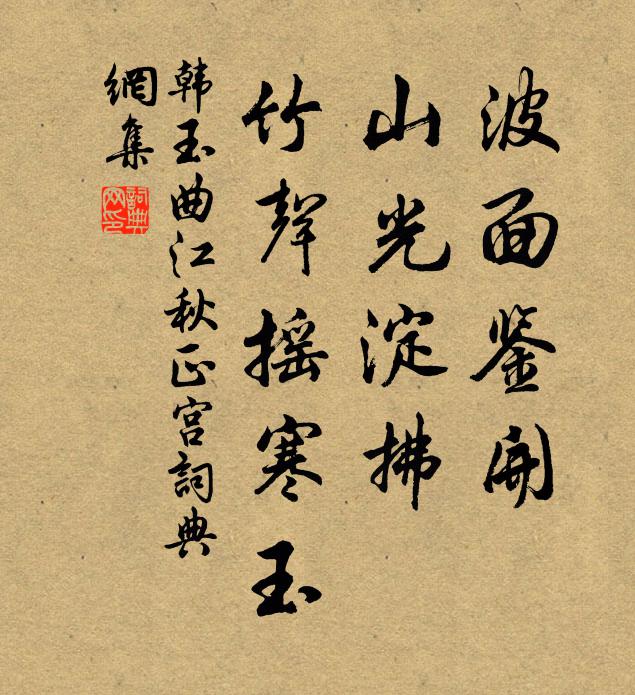 波面鉴开
山光淀拂
竹聲摇寒玉
韩玉曲江秋正宫詞典
網集
詞典
网印